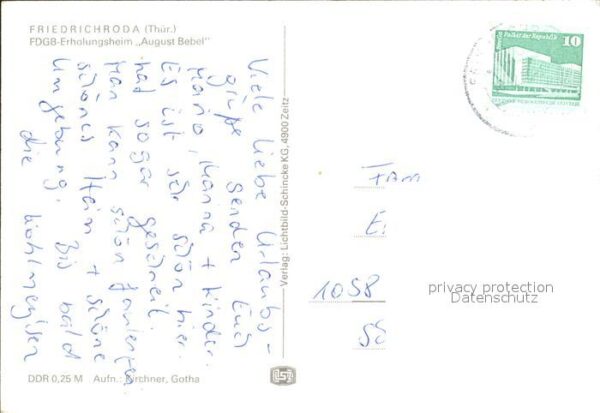 FRIEDRICHRODA (Thür.)
FDGB-Erholungsheim „August Bebel"
Viele liebe Urlaubs-
grüße senden Euch
Mario, Marina + Kinder.
Es ist sehr schön hier.
hat sogar geschneit.
Man kann schön
schönes Heim + schöne
Umgebung. Bis bald
die
Verlag: Lichtbild-Schincke KG, 4900 Zeitz
10
Palast der Republik
Fam
E.
1058
privacy protection
Datenschutz
DDR 0,25 M Aufn.: Kirchner, Gotha